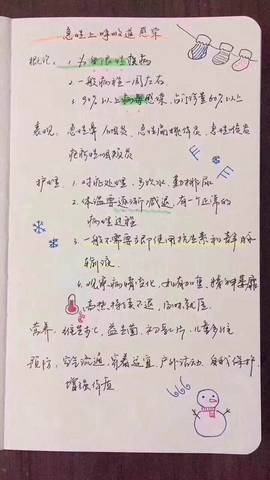 急性上呼吸道感染
概论、1. 为自限性疾病
2. 一般病程一周左右
3. 90%以上病毒感染,占门诊量的60%以上
表现、急性鼻/咽炎、急性扁桃体炎、急性喉炎
疱疹性咽峡炎
护理、1. 对症处理、多饮水、勤排尿
2. 体温要逐渐减退,有一个正常的
病程过程
3. 一般不需要立即使用抗生素和静脉
输液
4. 观察病情变化,如有加重、精神萎靡
高热持续不退,及时就医
营养、维生素C、益生菌、初乳片、儿童多维
预防、空气流通、穿着适宜、户外活动、自我保护、
增强体质